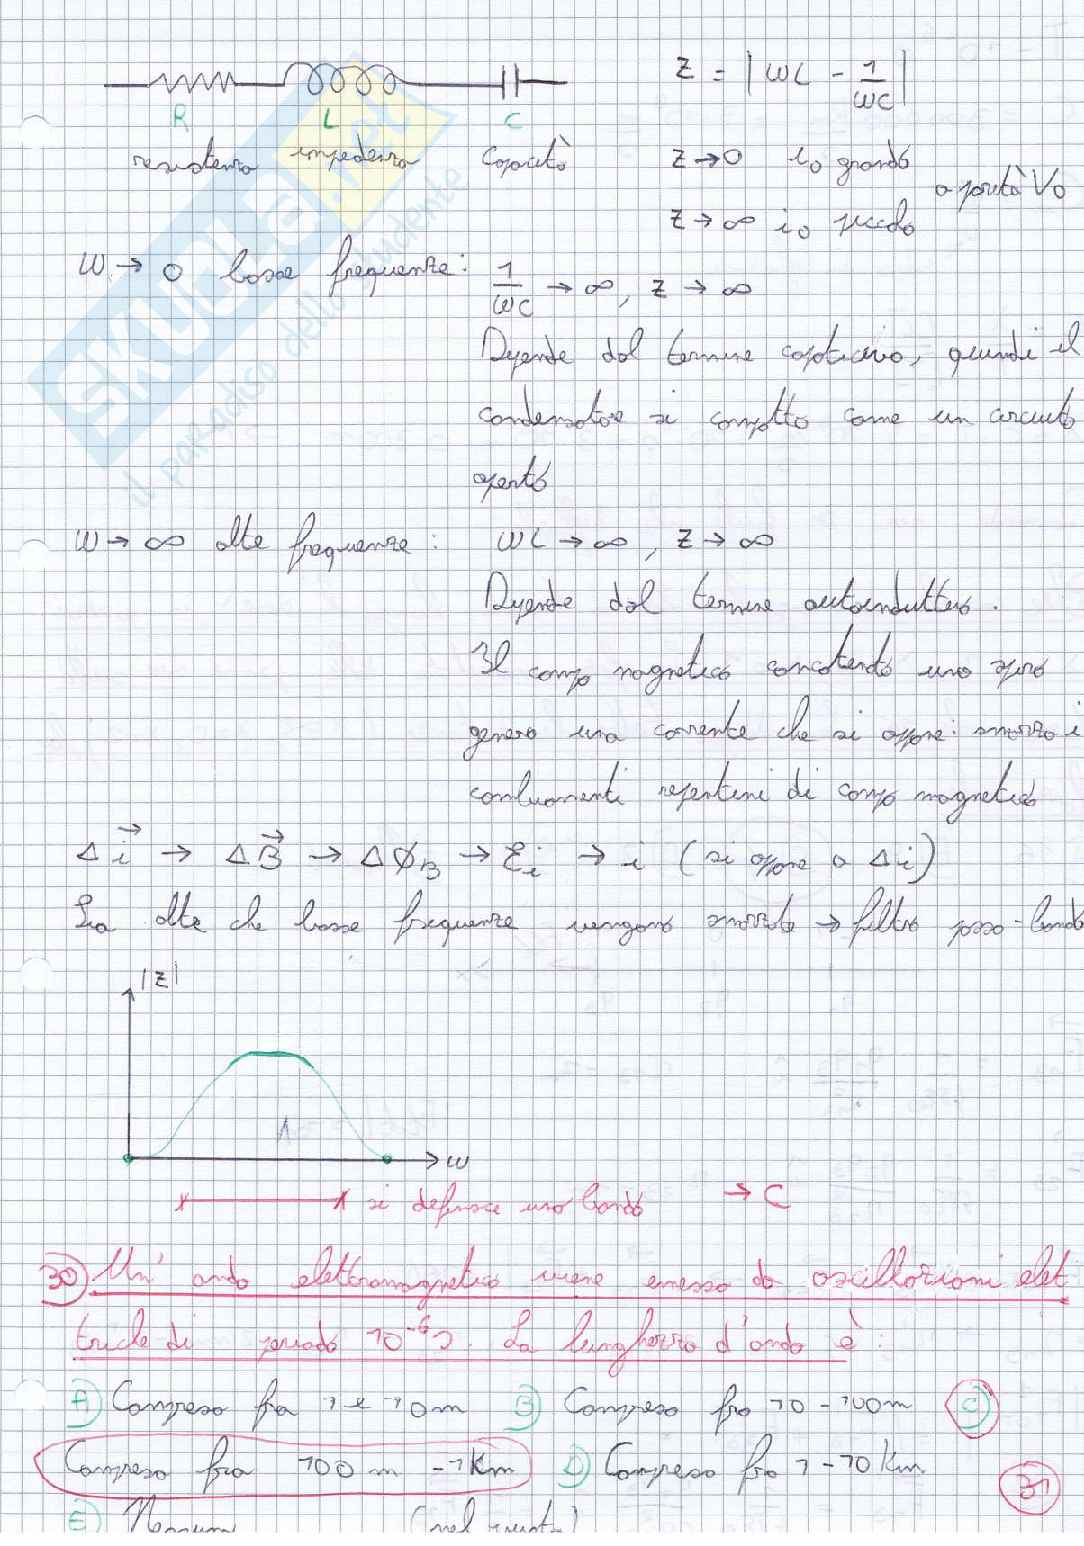 Z = | ωL - 1/ωC |
R L C
resistenza impedenza capacità
Z → 0 i₀ grande
a parità V₀
Z → ∞ i₀ piccolo
ω → 0 basse frequenze: 1/ωC → ∞, Z → ∞
Dipende dal termine capacitivo, quindi il
condensatore si comptta come un circuito
aperto
ω → ∞ alte frequenze: ωL → ∞, Z → ∞
Dipende dal termine autoinduttivo.
Il campo magnetico concatenato una spira
genera una corrente che si oppone: smorza i
cambiamenti repentini di campo magnetico
Δi → ΔB → ΔΦB → Ei → i (si oppone a Δi)
Sia alte che basse frequenze vengono smorzate → filtro passa-banda
|Z|
ω
si definisce una banda → C
30 Un' onda elettromagnetica viene emessa da oscillazioni elet
triche di periodo 10⁻⁶ s. La lunghezza d'onda è:
A) Compresa fra 1 e 10m B) Compresa fra 10 - 100m C)
Compresa fra 100 m - 1 Km D) Compresa fra 1 - 10 Km
31
E) Nessuna (nel vuoto)
SKUOLA.net
il paradiso dello studente